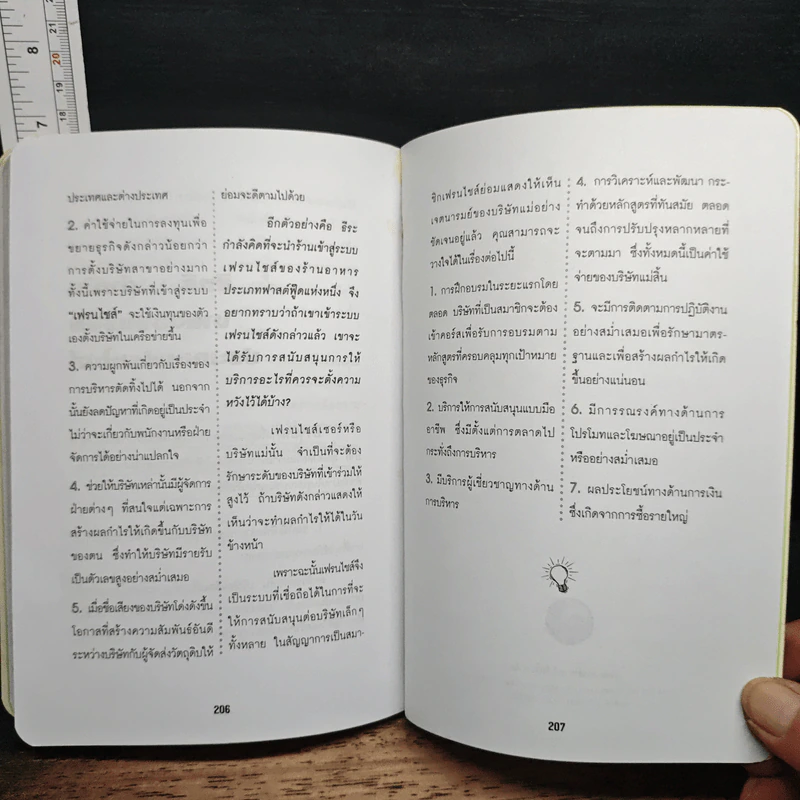 8
7
20
19
18
ประเทศและต่างประเทศ
2. ค่าใช้จ่ายในการลงทุนเพื่อ
ขยายธุรกิจดังกล่าวน้อยกว่า
การตั้งบริษัทสาขาอย่างมาก
ทั้งนี้เพราะบริษัทที่เข้าสู่ระบบ
"เฟรนไชส์" จะใช้เงินทุนของตัว
เองตั้งบริษัทในเครือข่ายขึ้น
3. ความผูกพันเกี่ยวกับเรื่องของ
การบริหารตัดทิ้งไปได้ นอกจาก
นั้นยังลดปัญหาที่เกิดอยู่เป็นประจำ
ไม่ว่าจะเกี่ยวกับพนักงานหรือฝ่าย
จัดการได้อย่างน่าแปลกใจ
4. ช่วยให้บริษัทเหล่านั้นมีผู้จัดการ
ฝ่ายต่างๆ ที่สนใจแต่เฉพาะการ
สร้างผลกำไรให้เกิดขึ้นกับบริษัท
ของตน ซึ่งทำให้บริษัทมีรายรับ
เป็นตัวเลขสูงอย่างสม่ำเสมอ
5. เมื่อชื่อเสียงของบริษัทโด่งดังขึ้น
โอกาสที่สร้างความสัมพันธ์อันดี
ระหว่างบริษัทกับผู้จัดส่งวัตถุดิบให้
ย่อมจะดีตามไปด้วย
อีกตัวอย่างคือ ธีระ
กำลังคิดที่จะนำร้านเข้าสู่ระบบ
เฟรนไชส์ของร้านอาหาร
ประเภทฟาสต์ฟู๊ดแห่งหนึ่ง จึง
อยากทราบว่าถ้าเขาเข้าระบบ
เฟรนไชส์ดังกล่าวแล้ว เขาจะ
ได้รับการสนับสนุนการให้
บริการอะไรที่ควรจะตั้งความ
หวังไว้ได้บ้าง?
เฟรนไชส์เซอร์หรือ
บริษัทแม่นั้น จำเป็นที่จะต้อง
รักษาระดับของบริษัทที่เข้าร่วมให้
สูงไว้ ถ้าบริษัทดังกล่าวแสดงให้
เห็นว่าจะทำผลกำไรให้ได้ในวัน
ข้างหน้า
เพราะฉะนั้นเฟรนไชส์จึง
เป็นระบบที่เชื่อถือได้ในการที่จะ
ให้การสนับสนุนต่อบริษัทเล็กๆ
ทั้งหลาย ในสัญญาการเป็นสมา-
206
ชิกเฟรนไชส์ย่อมแสดงให้เห็น
เจตนารมย์ของบริษัทแม่อย่าง
ชัดเจนอยู่แล้ว คุณสามารถจะ
วางใจได้ในเรื่องต่อไปนี้
1. การฝึกอบรมในระยะแรกโดย
ตลอด บริษัทที่เป็นสมาชิกจะต้อง
เข้าคอร์สเพื่อรับการอบรมตาม
หลักสูตรที่ครอบคลุมทุกเป้าหมาย
ของธุรกิจ
2. บริการให้การสนับสนุนแบบมือ
อาชีพ ซึ่งมีตั้งแต่การตลาดไป
กระทั่งถึงการบริหาร
3. มีบริการผู้เชี่ยวชาญทางด้าน
การบริหาร
4. การวิเคราะห์และพัฒนา กระ-
ทำด้วยหลักสูตรที่ทันสมัย ตลอด
จนถึงการปรับปรุงหลากหลายที่
จะตามมา ซึ่งทั้งหมดนี้เป็นค่าใช้
จ่ายของบริษัทแม่สิ้น
5. จะมีการติดตามการปฏิบัติงาน
อย่างสม่ำเสมอเพื่อรักษามาตร-
ฐานและเพื่อสร้างผลกำไรให้เกิด
ขึ้นอย่างแน่นอน
6. มีการรณรงค์ทางด้านการ
โปรโมทและโฆษณาอยู่เป็นประจำ
หรืออย่างสม่ำเสมอ
7. ผลประโยชน์ทางด้านการเงิน
ซึ่งเกิดจากการซื้อรายใหญ่
207